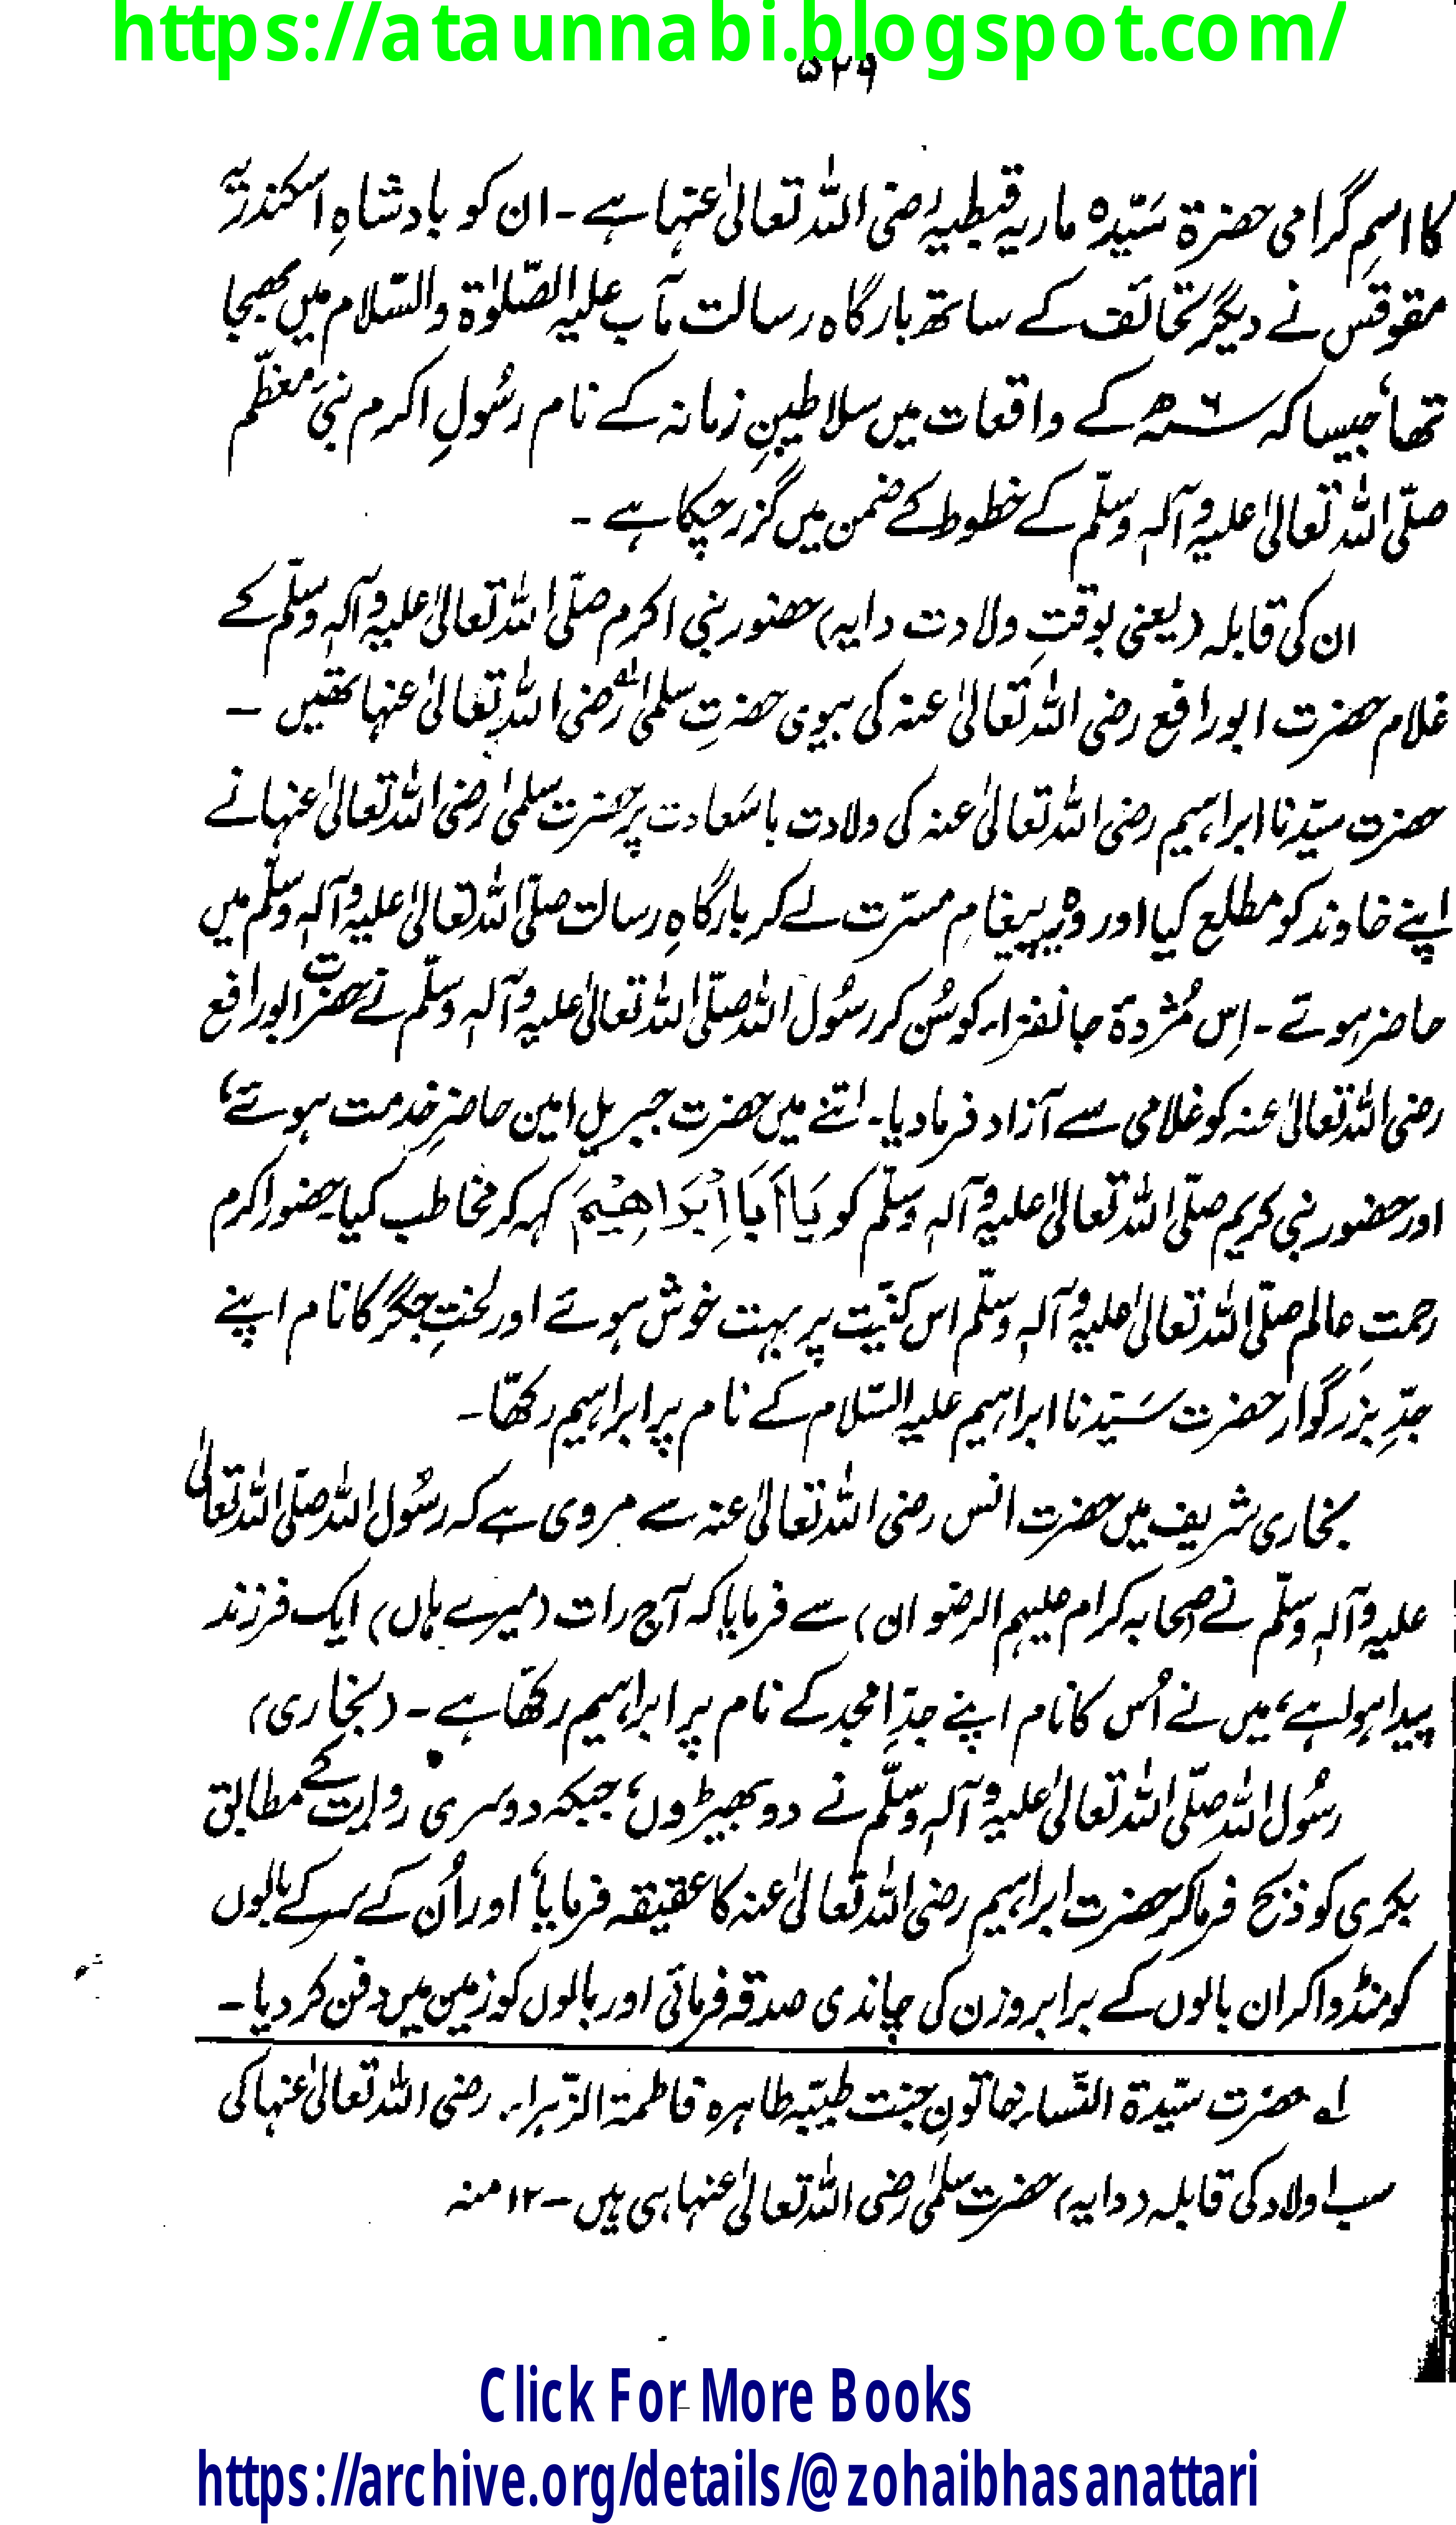 https://ataunnabi.blogspot.com/
۵۲۹
کا اسمِ گرامی حضرۃ سَیّدہ ماریہ قبطیہ رضی اللہ تعالیٰ عنہا ہے ۔ ان کو بادشاہِ اسکندریہ
مقوقس نے دیگر تحائف کے ساتھ بارگاہ رسالت مآب علیہ الصّلوٰۃ والسّلام میں بھیجا
تھا، جیسا کہ ۶ھ کے واقعات میں سلاطینِ زمانہ کے نام رسُولِ اکرم نبیّ معظّم
صلّی اللہ تعالیٰ علیہ وآلہٖ وسلّم کے خطوط کے ضمن میں گزر چکا ہے ۔
ان کی قابلہ (یعنی بوقتِ ولادت دایہ) حضور نبی اکرم صلّی اللہ تعالیٰ علیہ وآلہٖ وسلّم کے
غلام حضرت ابورافع رضی اللہ تعالیٰ عنہ کی بیوی حضرتِ سلمیٰ لہ رضی اللہ تعالیٰ عنہا تھیں ۔
حضرت سیّدنا ابراہیم رضی اللہ تعالیٰ عنہ کی ولادت باسَعادت پر حضرت سلمیٰ رضی اللہ تعالیٰ عنہا نے
اپنے خاوند کو مطلع کیا اور وہ یہ پیغامِ مسرّت لے کر بارگاہِ رسالت صلّی اللہ تعالیٰ علیہ وآلہٖ وسلّم میں
حاضر ہوئے ۔ اِس مُژدۂ جانفزاء کو سُن کر رسُول اللہ صلّی اللہ تعالیٰ علیہ وآلہٖ وسلّم نے حضرت ابورافع
رضی اللہ تعالیٰ عنہ کو غلامی سے آزاد فرما دیا ۔ اتنے میں حضرت جبریلِ امین حاضرِ خدمت ہوئے،
اور حضور نبی کریم صلّی اللہ تعالیٰ علیہ وآلہٖ وسلّم کو یَا اَبَا اِبْرَاهِیْمَ کہہ کر مخاطب کیا۔ حضور اکرم
رحمتِ عالم صلّی اللہ تعالیٰ علیہ وآلہٖ وسلّم اس کنیّت پر بہت خوش ہوئے اور لختِ جگر کا نام اپنے
جدِّ بزرگوار حضرت سَیّدنا ابراہیم علیہ السّلام کے نام پر ابراہیم رکھّا ۔
بخاری شریف میں حضرت انس رضی اللہ تعالیٰ عنہ سے مروی ہے کہ رسُول اللہ صلّی اللہ تعالیٰ
علیہ وآلہٖ وسلّم نے (صحابہ کرام علیہم الرضوان) سے فرمایا کہ آج رات (میرے ہاں) ایک فرزند
پیدا ہوا ہے، میں نے اُس کا نام اپنے جدِّ امجد کے نام پر ابراہیم رکھّا ہے ۔ (بخاری)
رسُول اللہ صلّی اللہ تعالیٰ علیہ وآلہٖ وسلّم نے دو بھیڑوں، جبکہ دوسری روایت کے مطابق
بکری کو ذبح فرما کر حضرت ابراہیم رضی اللہ تعالیٰ عنہ کا عقیقہ فرمایا، اور اُن کے سر کے بالوں
کو منڈوا کر ان بالوں کے برابر وزن کی چاندی صدقہ فرمائی اور بالوں کو زمین میں دفن کر دیا ۔
لہ حضرت سیّدۃ النّساء خاتونِ جنت طیّبہ طاہرہ فاطمۃ الزّہراء رضی اللہ تعالیٰ عنہا کی
سب اولاد کی قابلہ (دایہ) حضرت سلمٰی رضی اللہ تعالیٰ عنہا ہی ہیں ۔ ۱۲ منہ
Click For More Books
https://archive.org/details/@zohaibhasanattari